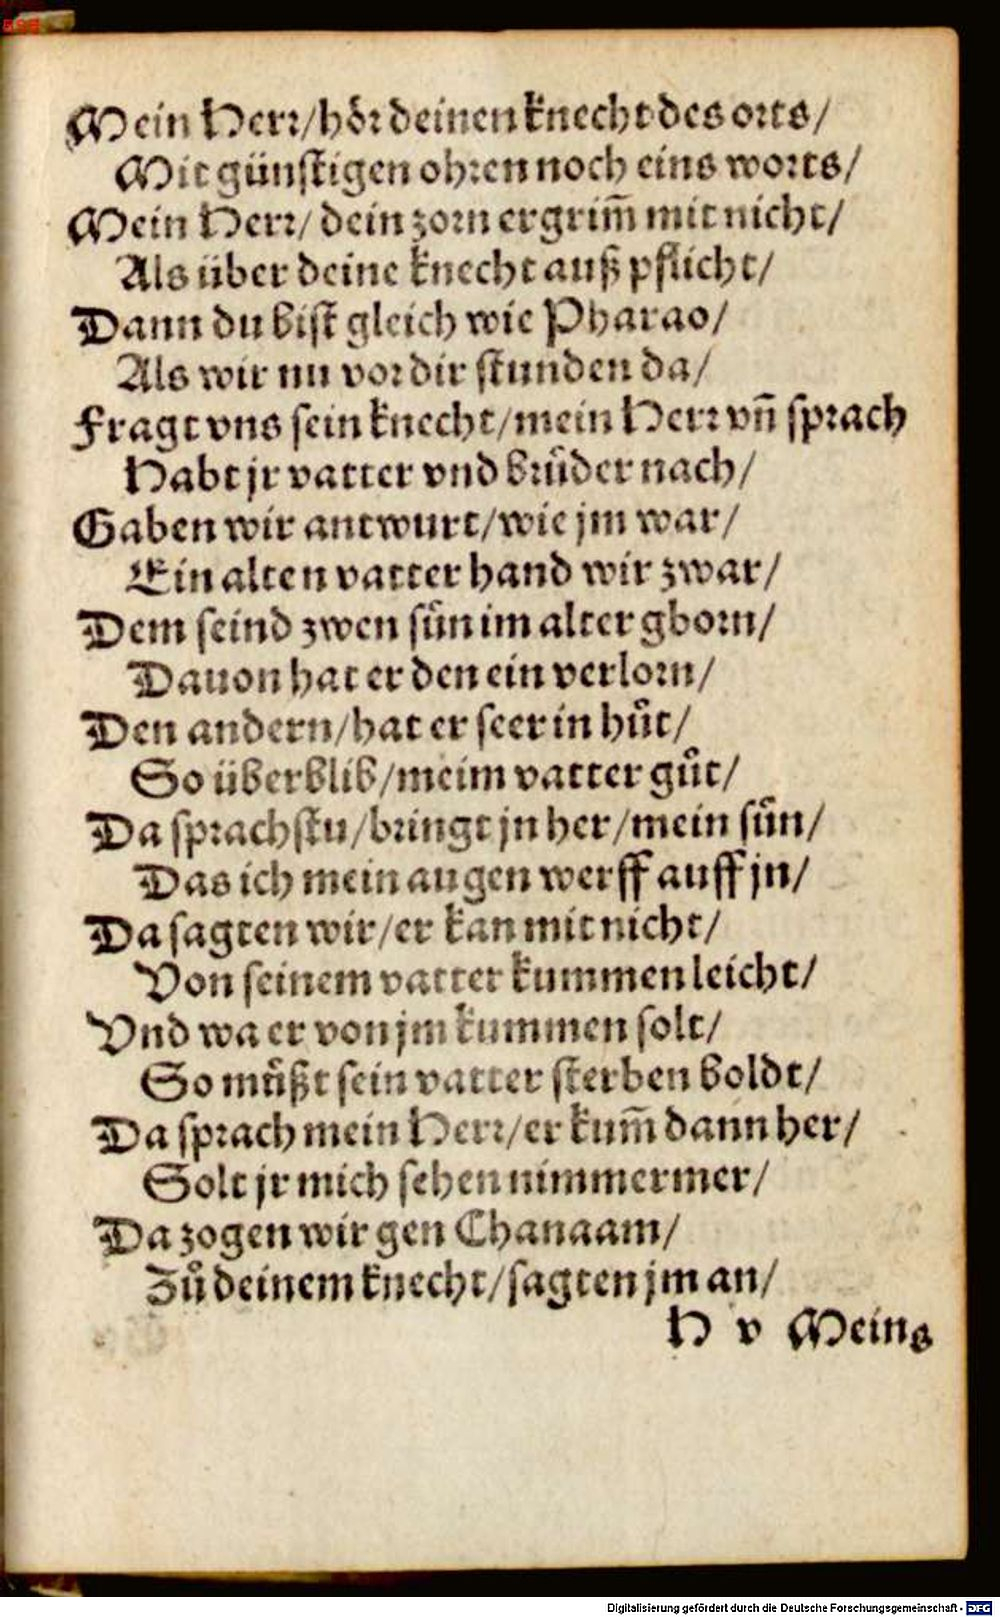 Mein Herr/hoͤr deinen knecht des orts/
Mit günstigen ohren noch eins worts/
Mein Herr/ dein zorn ergrim̄ mit nicht/
Als über deine knecht auß pflicht/
Dann du bist gleich wie Pharao/
Als wir nu vor dir stunden da/
Fragt vns sein knecht/mein Herr vn̄ sprach
Habt jr vatter vnd bruͤder nach/
Gaben wir antwurt/wie jm war/
Ein alten vatter hand wir zwar/
Dem seind zwen suͤn im alter gborn/
Dauon hat er den ein verlorn/
Den andern/hat er seer in huͦt/
So überblib/meim vatter guͦt/
Da sprachstu/bringt jn her/mein suͤn/
Das ich mein augen werff auff jn/
Da sagten wir/er kan mit nicht/
Von seinem vatter kummen leicht/
Vnd wa er von jm kummen solt/
So muͤßt sein vatter sterben boldt/
Da sprach mein Herr/er kum̄ dann her/
Solt jr mich sehen nimmermer/
Da zogen wir gen Chanaam/
Zuͦ deinem knecht/sagten jm an/
H v Meins
Digitalisierung gefördert durch die Deutsche Forschungsgemeinschaft - DFG